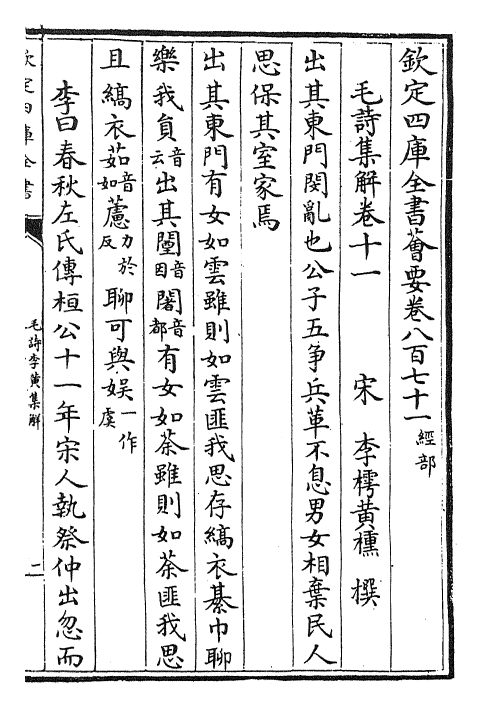 欽定四庫全書薈要卷八百七十一 經部
毛詩集解卷十一
宋 李樗黃櫄 撰
出其東門閔亂也公子五争兵革不息男女相棄民人
思保其室家焉
出其東門有女如雲雖則如雲匪我思存縞衣綦巾聊
樂我員音云出其闉音因闍音都有女如荼雖則如荼匪我思
且縞衣茹音如藘力於反聊可與娯一作虞
李曰春秋左氏傳桓公十一年宋人執祭仲出忽而
欽定四庫全書
毛詩李黃集解
二